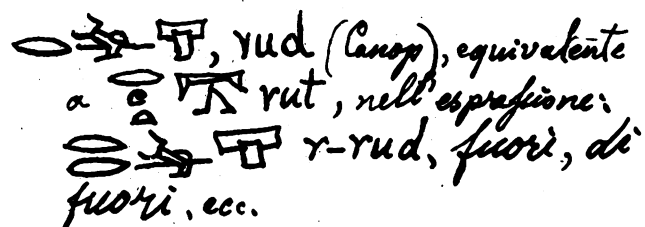 , rud (Canop), equivalente
a rut, nell'espreſsione:
r-rud, fuori, di
fuori, ecc.